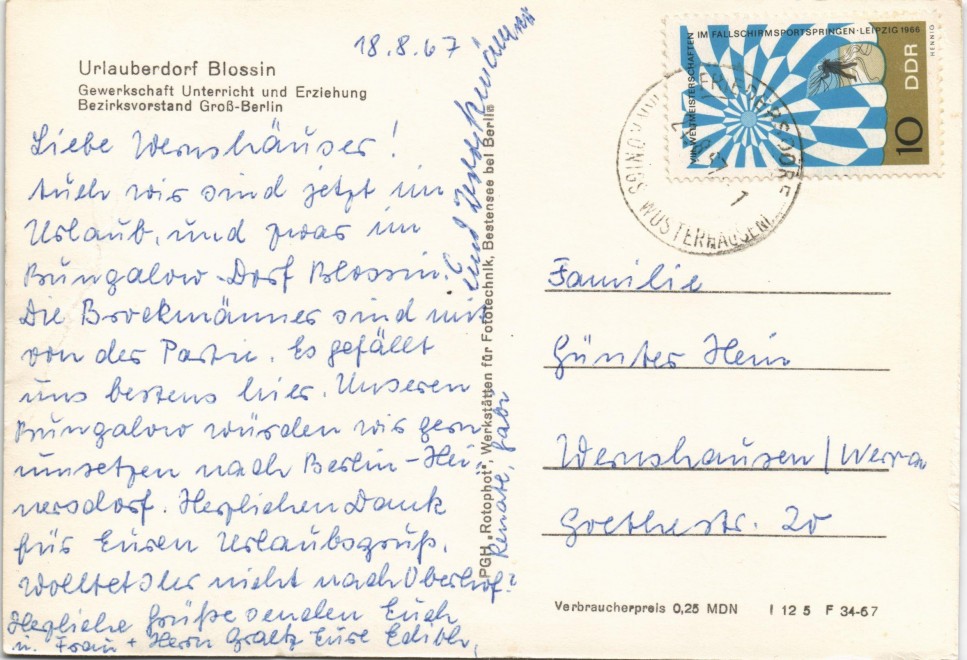 18.8.67
Urlauberdorf Blossin
Gewerkschaft Unterricht und Erziehung
Bezirksvorstand Groß-Berlin
Liebe Wernshäuser!
Auch wir sind jetzt im
Urlaub, und zwar im
Bungalow-Dorf Blossin.
Die Brockmänner sind mit
von der Partie. Es gefällt
uns bestens hier. Unseren
Bungalow würden wir gern
umsetzen nach Berlin-Hei-
nersdorf. Herzlichen Dank
für Euren Urlaubsgruß.
Wolltet Ihr nicht nach Oberhof?
Herzliche Grüße senden Euch
u. Frau + Herrn Graetz Eure Edith,
Renate,
und
PGH „Rotophot", Werkstätten für Fototechnik, Bestensee bei Berlin
VIII. WELTMEISTERSCHAFTEN
IM FALLSCHIRMSPORTSPRINGEN · LEIPZIG 1966
HENNIG
DDR
10
FRIEDERSDORF
KÖNIGS WUSTERHAUSEN
Familie
Günter Hein
Wernshausen/Werra
Goethestr. 20
Verbraucherpreis 0,25 MDN I 12 5 F 34-67